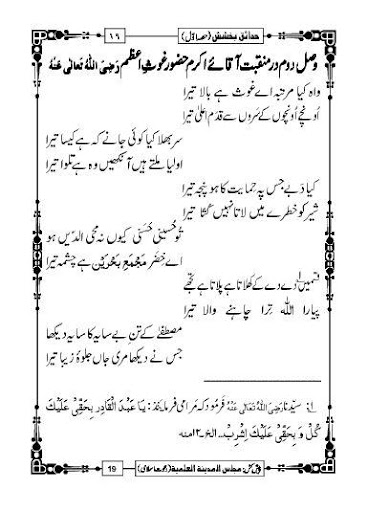 حدائقِ بخشش (حصہ اوّل)
۱٦
وصل دوم در منقبت آقائے اکرم حضور غوثِ اعظم رَضِیَ اللہُ تَعَالٰی عَنْہُ
واہ کیا مرتبہ اے غوث ہے بالا تیرا
اُونچے اُونچوں کے سَروں سے قدم اعلیٰ تیرا
سر بھلا کیا کوئی جانے کہ ہے کیسا تیرا
اولیا ملتے ہیں آنکھیں وہ ہے تلوا تیرا
کیا دَبے جس پہ حمایت کا ہو پنجہ تیرا
شیر کو خطرے میں لاتا نہیں کُتّا تیرا
تُو حُسینی حَسَنی کیوں نہ محی الدّیں ہو
اے خِضَر مَجْمَعِ بَحْرَیْن ہے چشمہ تیرا
قسمیں دے دے کے کھلاتا ہے پلاتا ہے تجھے
پیارا اللہ تِرا چاہنے والا تیرا
مصطفٰے کے تنِ بے سایہ کا سایہ دیکھا
جس نے دیکھا مری جاں جلوۂ زیبا تیرا
۱: سیّدنا رَضِیَ اللہُ تَعَالٰی عَنْہُ فرمود کہ مرا می فرمایند: یَا عَبْدَ الْقَادِرِ بِحَقِّیْ عَلَیْكَ
کُلْ وَ بِحَقِّیْ عَلَیْكَ اِشْرَبْ.. الخ۔ ۱۲ منہ
پیش کش: مجلس المدینۃ العلمیۃ (دعوتِ اسلامی)
19